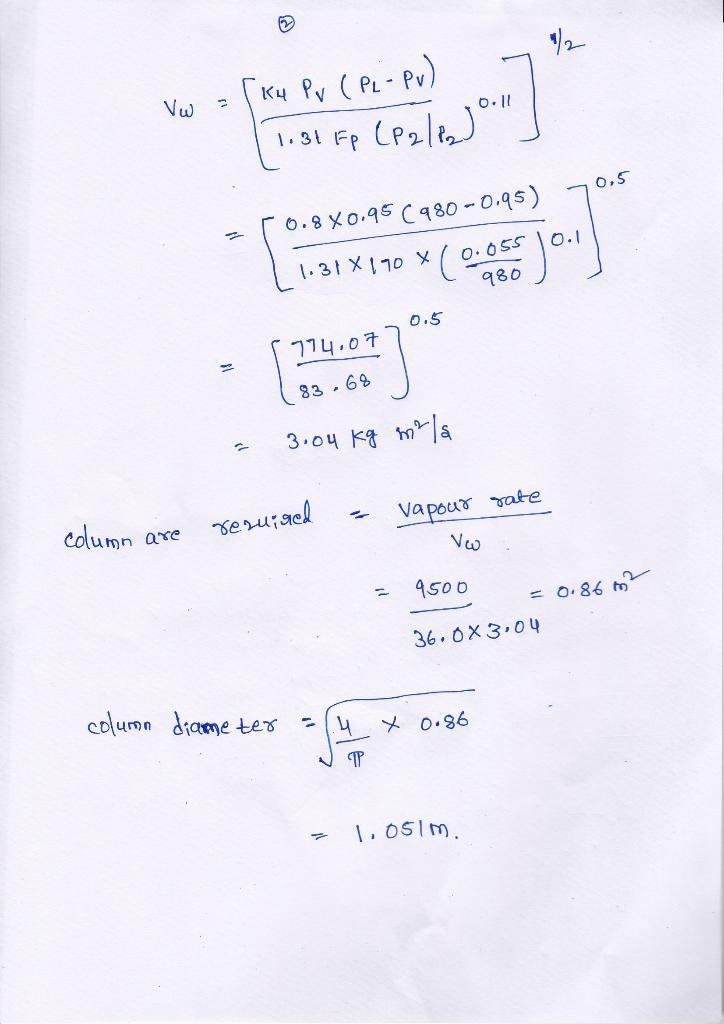 ②
Vw = [ K4 Pv ( PL - Pv ) / 1.31 Fp ( P2 | P2 )^0.11 ]^1/2
= [ 0.8 X 0.95 ( 980 - 0.95 ) / 1.31 X 170 X ( 0.055 / 980 )^0.1 ]^0.5
= [ 774.07 / 83.68 ]^0.5
= 3.04 kg m²/s
column are required = vapour rate / Vw
= 9500 / 36.0 X 3.04 = 0.86 m²
column diameter = √ 4 / π X 0.86
= 1.051m.